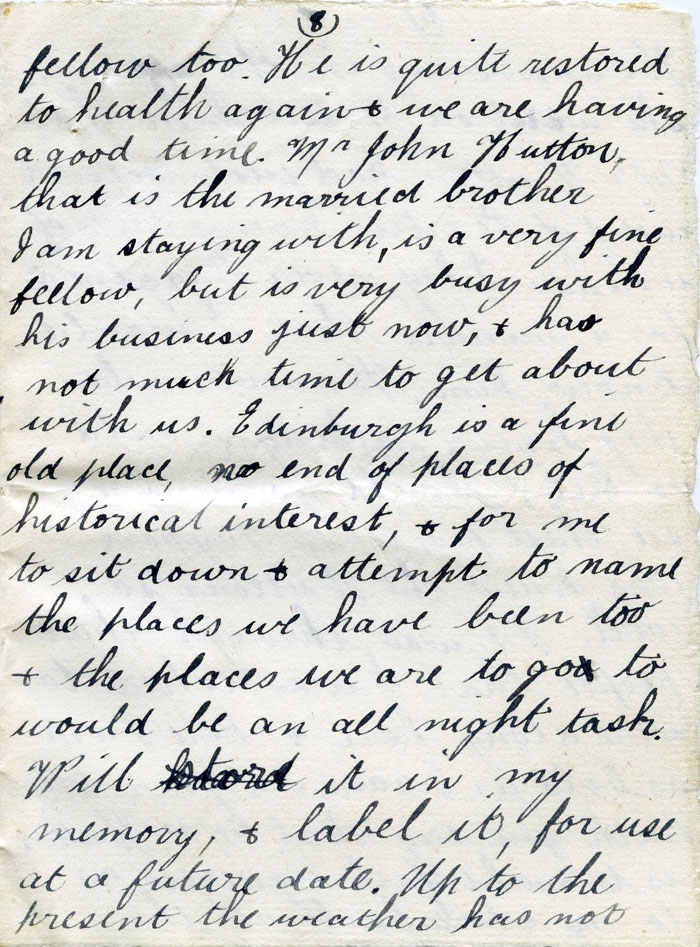 (8)
fellow too. He is quite restored
to health again & we are having
a good time. Mr John Hutton,
that is the married brother
I am staying with, is a very fine
fellow, but is very busy with
his business just now, & has
not much time to get about
with us. Edinburgh is a fine
old place, no end of places of
historical interest, & for me
to sit down & attempt to name
the places we have been too
& the places we are to go to
would be an all night task.
Will stord it in my
memory, & label it, for use
at a future date. Up to the
present the weather has not